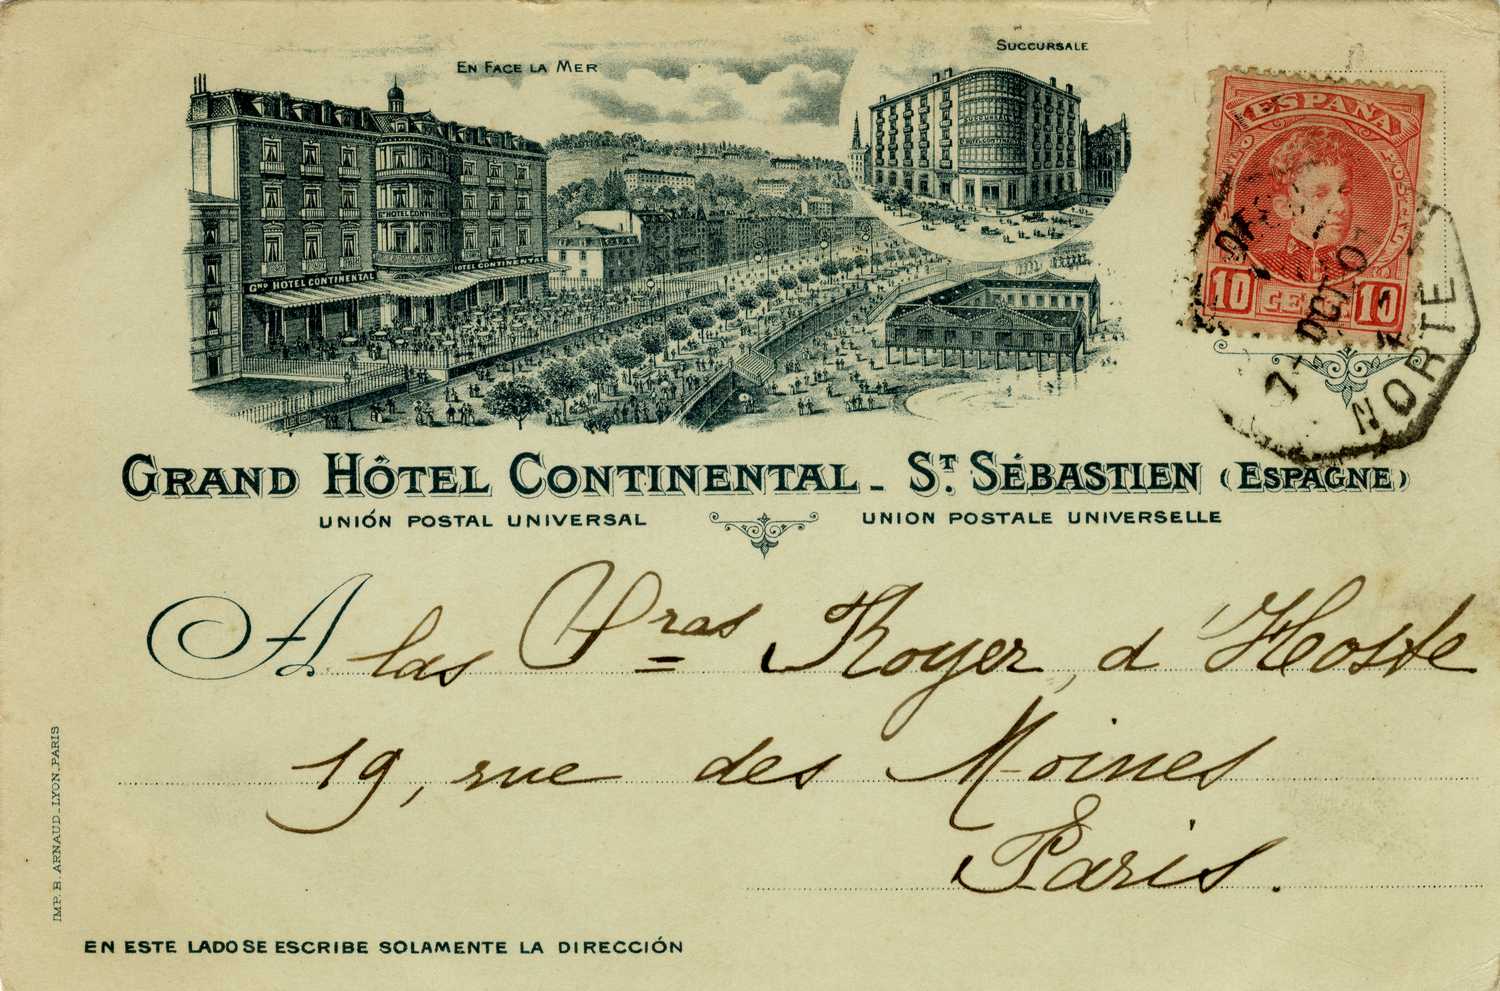 En Face la Mer
Succursale
Gᴰ HÔTEL CONTINENTAL
Gᴰ HÔTEL CONTINENTAL
HOTEL CONTINENTAL
SUCCURSALE
HOTEL CONTINENTAL
ESPAÑA
10 CENT. 10
NORTE
Grand Hôtel Continental - Sᵀ Sébastien (Espagne)
UNIÓN POSTAL UNIVERSAL
UNION POSTALE UNIVERSELLE
A las Sras Royer, d'Hoste
19, rue des Moines
Paris.
IMP. B. ARNAUD_LYON_PARIS
EN ESTE LADO SE ESCRIBE SOLAMENTE LA DIRECCIÓN